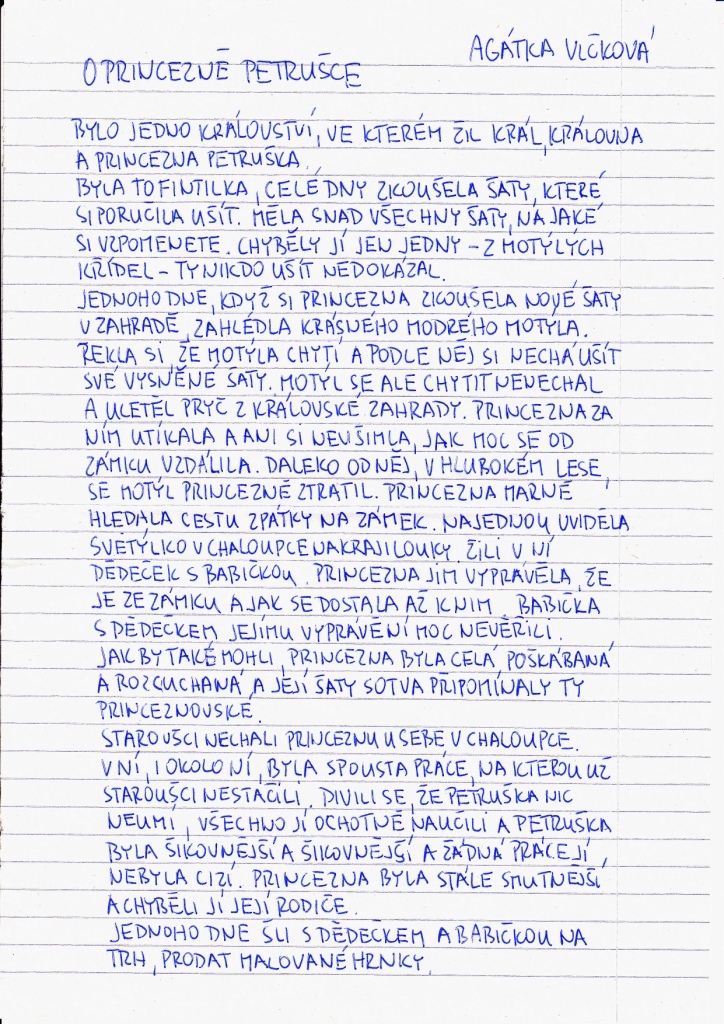 AGÁTKA VLČKOVÁ
O PRINCEZNĚ PETRUŠCE
BYLO JEDNO KRÁLOVSTVÍ, VE KTERÉM ŽIL KRÁL, KRÁLOVNA
A PRINCEZNA PETRUŠKA.
BYLA TO FINTILKA, CELÉ DNY ZKOUŠELA ŠATY, KTERÉ
SI PORUČILA UŠÍT. MĚLA SNAD VŠECHNY ŠATY, NA JAKÉ
SI VZPOMENETE. CHYBĚLY JÍ JEN JEDNY – Z MOTÝLÝCH
KŘÍDEL – TY NIKDO UŠÍT NEDOKÁZAL.
JEDNOHO DNE, KDYŽ SI PRINCEZNA ZKOUŠELA NOVÉ ŠATY
V ZAHRADĚ, ZAHLÉDLA KRÁSNÉHO MODRÉHO MOTÝLA.
ŘEKLA SI, ŽE MOTÝLA CHYTÍ A PODLE NĚJ SI NECHÁ UŠÍT
SVÉ VYSNĚNÉ ŠATY. MOTÝL SE ALE CHYTIT NENECHAL
A ULETĚL PRYČ Z KRÁLOVSKÉ ZAHRADY. PRINCEZNA ZA
NÍM UTÍKALA A ANI SI NEVŠIMLA, JAK MOC SE OD
ZÁMKU VZDÁLILA. DALEKO OD NĚJ, V HLUBOKÉM LESE,
SE MOTÝL PRINCEZNĚ ZTRATIL. PRINCEZNA MARNĚ
HLEDALA CESTU ZPÁTKY NA ZÁMEK. NAJEDNOU UVIDĚLA
SVĚTÝLKO V CHALOUPCE NA KRAJI LOUKY. ŽILI V NÍ
DĚDEČEK S BABIČKOU. PRINCEZNA JIM VYPRÁVĚLA, ŽE
JE ZE ZÁMKU A JAK SE DOSTALA AŽ K NIM. BABIČKA
S DĚDEČKEM JEJÍMU VYPRÁVĚNÍ MOC NEVĚŘILI.
JAK BY TAKÉ MOHLI, PRINCEZNA BYLA CELÁ POŠKÁBANÁ
A ROZCUCHANÁ A JEJÍ ŠATY SOTVA PŘIPOMÍNALY TY
PRINCEZNOVSKÉ.
STAROUŠCI NECHALI PRINCEZNU U SEBE V CHALOUPCE.
V NÍ, I OKOLO NÍ, BYLA SPOUSTA PRÁCE, NA KTEROU UŽ
STAROUŠCI NESTAČILI. DIVILI SE, ŽE PETRUŠKA NIC
NEUMÍ, VŠECHNO JÍ OCHOTNĚ NAUČILI A PETRUŠKA
BYLA ŠIKOVNĚJŠÍ A ŠIKOVNĚJŠÍ A ŽÁDNÁ PRÁCE JÍ
NEBYLA CIZÍ. PRINCEZNA BYLA STÁLE SMUTNĚJŠÍ
A CHYBĚLI JÍ JEJÍ RODIČE.
JEDNOHO DNE ŠLI S DĚDEČKEM A BABIČKOU NA
TRH, PRODAT MALOVANÉ HRNKY.